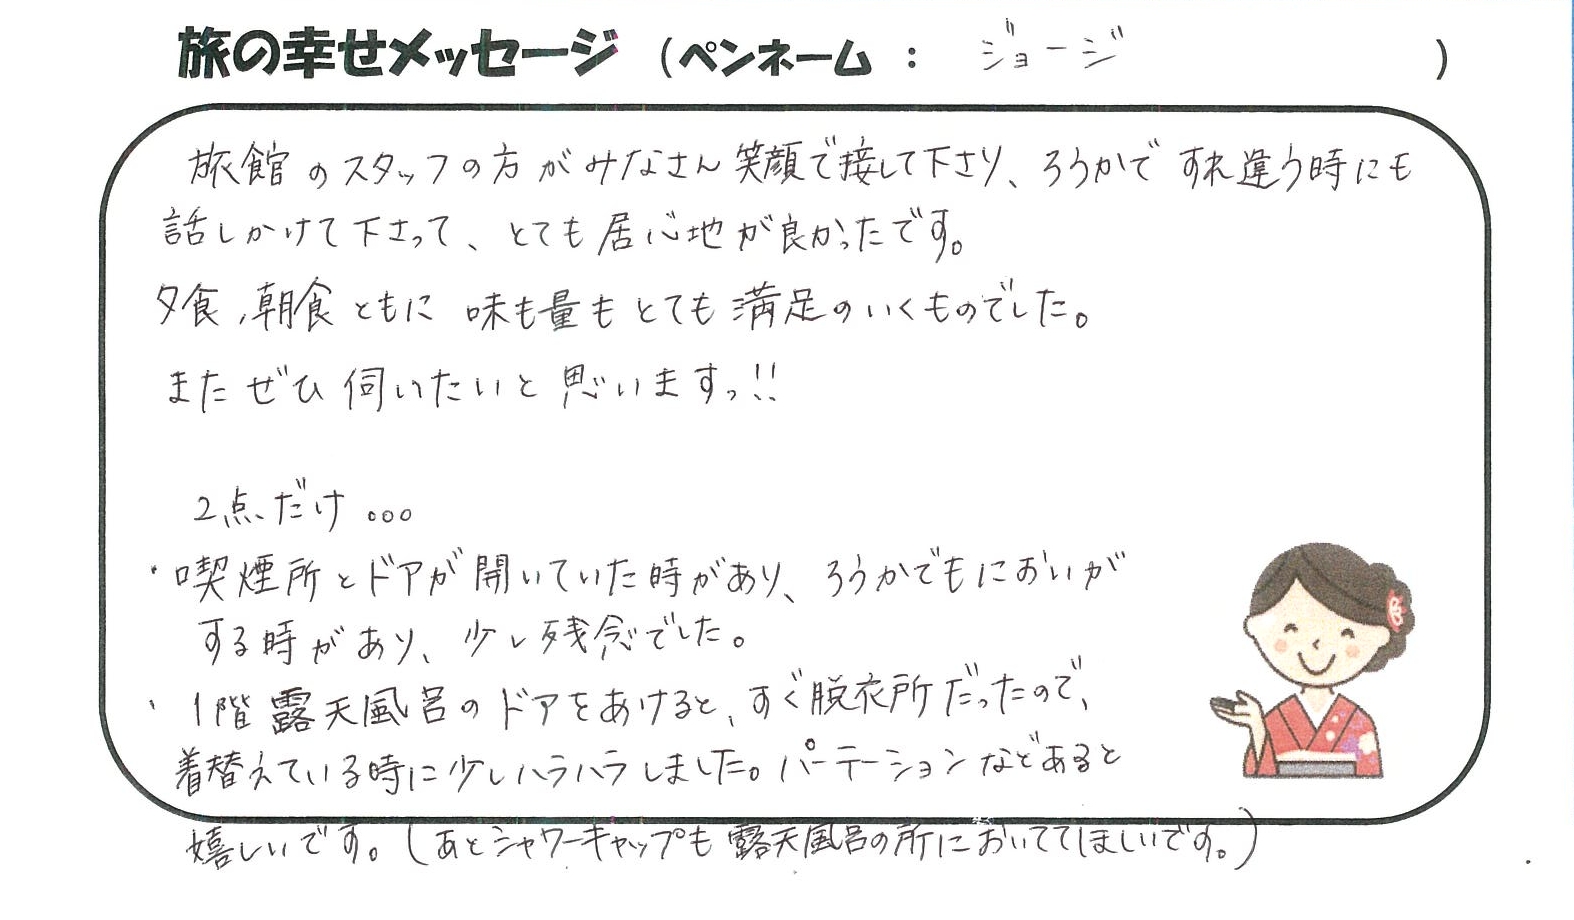 旅の幸せメッセージ (ペンネーム : ジョージ )
旅館のスタッフの方がみなさん笑顔で接して下さり、ろうかですれ違う時にも
話しかけて下さって、とても居心地が良かったです。
夕食、朝食ともに味も量もとても満足のいくものでした。
またぜひ伺いたいと思いますっ!!
2点だけ...
・喫煙所とドアが開いていた時があり、ろうかでもにおいが
する時があり、少し残念でした。
・1階露天風呂のドアをあけると、すぐ脱衣所だったので、
着替えている時に少しハラハラしました。パーテーションなどあると
嬉しいです。(あとシャワーキャップも露天風呂の所においててほしいです。)